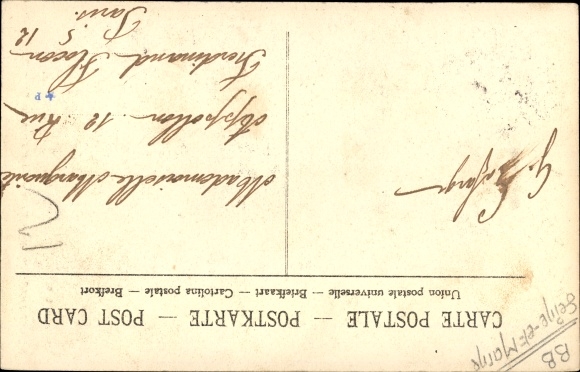 CARTE POSTALE — POSTKARTE — POST CARD
Union postale universelle — Briefkaart — Cartolina postale — Brefkort
Mademoiselle Marguerite
Appollon 12 Rue
Ferdinand Flocon
Paris. 5 12
G. Lafarge
BB
Seine-et-Marne